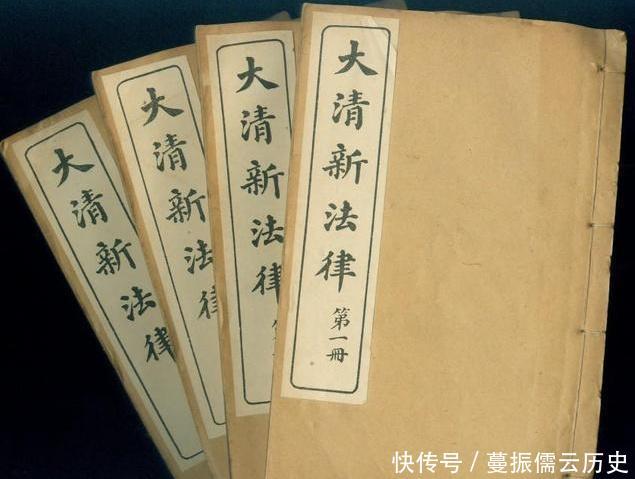 大清新法律
大清新法
大清新法律
第
大清新法律
第一冊
快传号 / 蔓振儒云历史